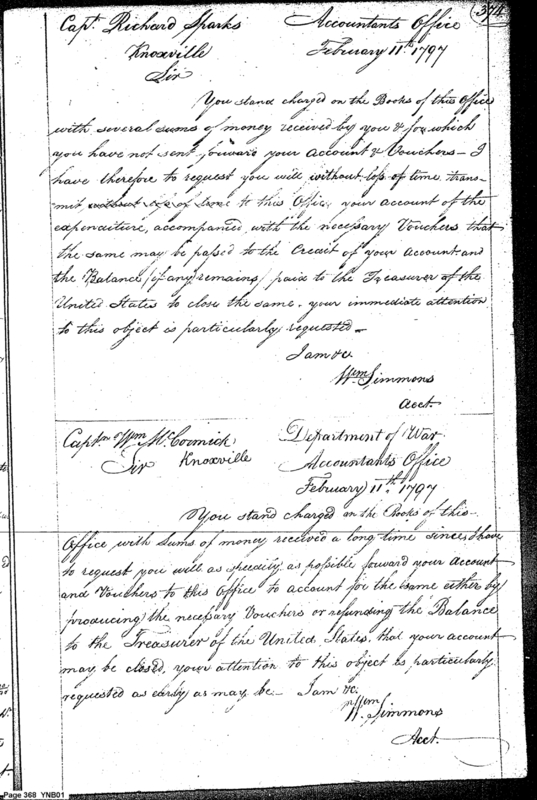 374
Capt. Richard Sparks Accountants Office
Knoxville February 11th 1797
Sir
You stand charged on the Books of this Office
with several sums of money received by you & for which
you have not sent forward your Account & Vouchers – I
have therefore to request you will without loss of time trans-
mit, without loss of time to this Office your account of the
expenditure, accompanied with the necessary Vouchers that
the same may be passed to the Credit of your Account and
the Balance /if any remains/ paid to the Treasurer of the
United States to close the same. your immediate attention
to this object is particularly requested –
I am &c
Wm Simmons
Acct.
Captn Wm McCormick Department of War
Sir Knoxville Accountants Office
February 11th 1797
You stand charged on the Books of this
Office, with Sums of money received a long time since, I have
to request you will as speedily as possible forward your Account
and Vouchers to this Office to account for the same either by
producing the necessary Vouchers or refunding the Balance
to the Treasurer of the United States, that your account
may be closed, your attention to this object is particularly
requested as early as may be – I am &c.
Wm Simmons
Acct.
Page 368 YNB01